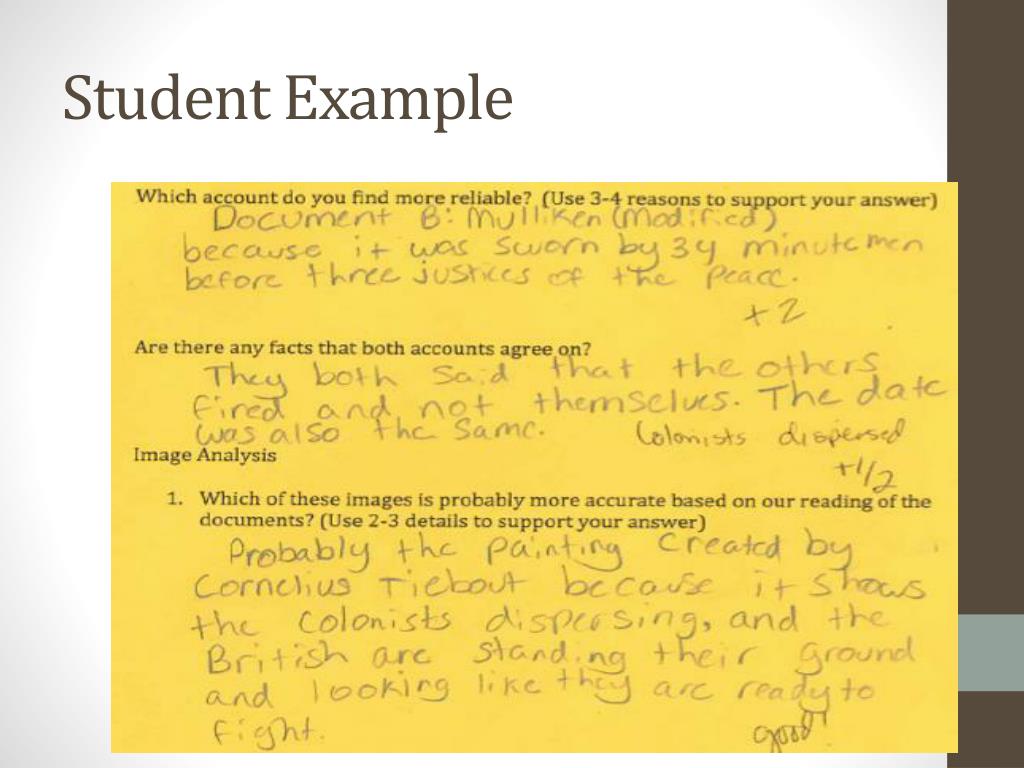 Student Example
Which account do you find more reliable? (Use 3-4 reasons to support your answer)
Document B: Mulliken (Modified)
because it was sworn by 34 minutemen
before three justices of the Peace.
+2
Are there any facts that both accounts agree on?
They both said that the others
fired and not themselves. The date
was also the same. Colonists dispersed
+1/2
Image Analysis
1. Which of these images is probably more accurate based on our reading of the
documents? (Use 2-3 details to support your answer)
Probably the painting created by
Cornelius Tiebout because it shows
the colonists dispersing, and the
British are standing their ground
and looking like they are ready to
fight.
good!